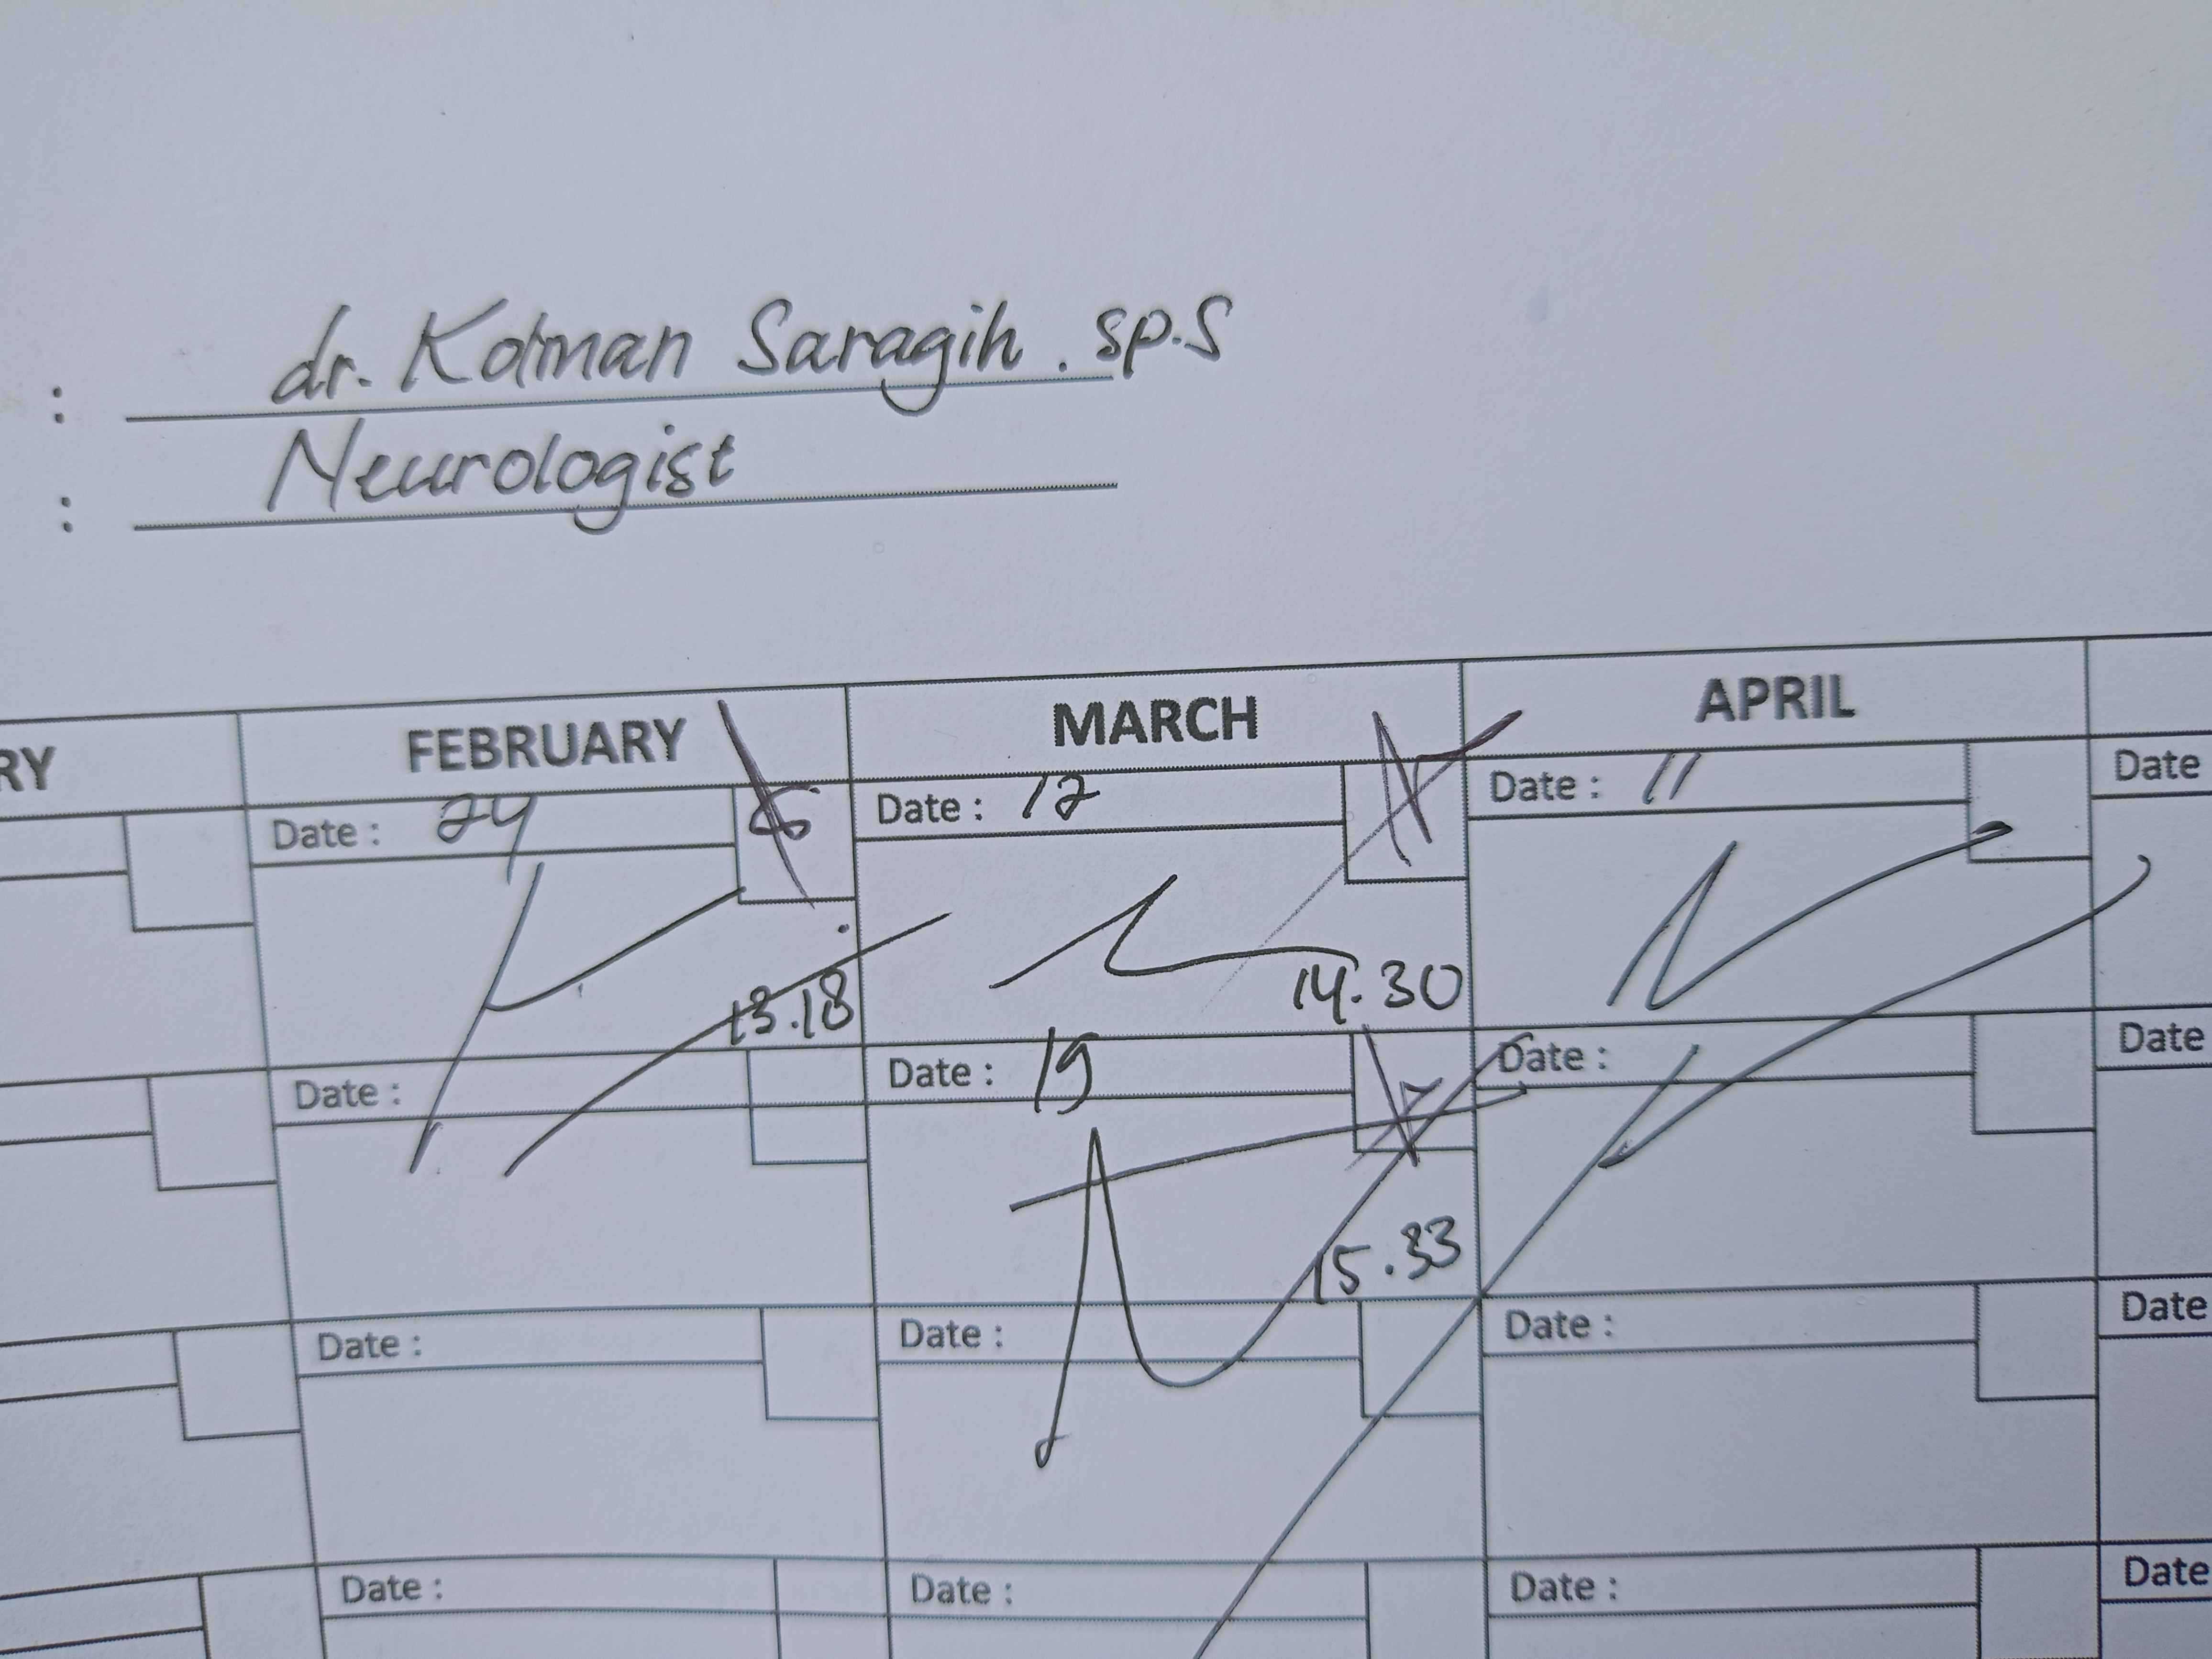 : dr. Kolman Saragih . sp.S
: Neurologist
RY FEBRUARY MARCH APRIL
Date : 24 Date : 12 Date : 11 Date
13.18 14.30
Date : Date : 19 Date : Date
15.33
Date : Date : Date : Date
Date : Date : Date : Date